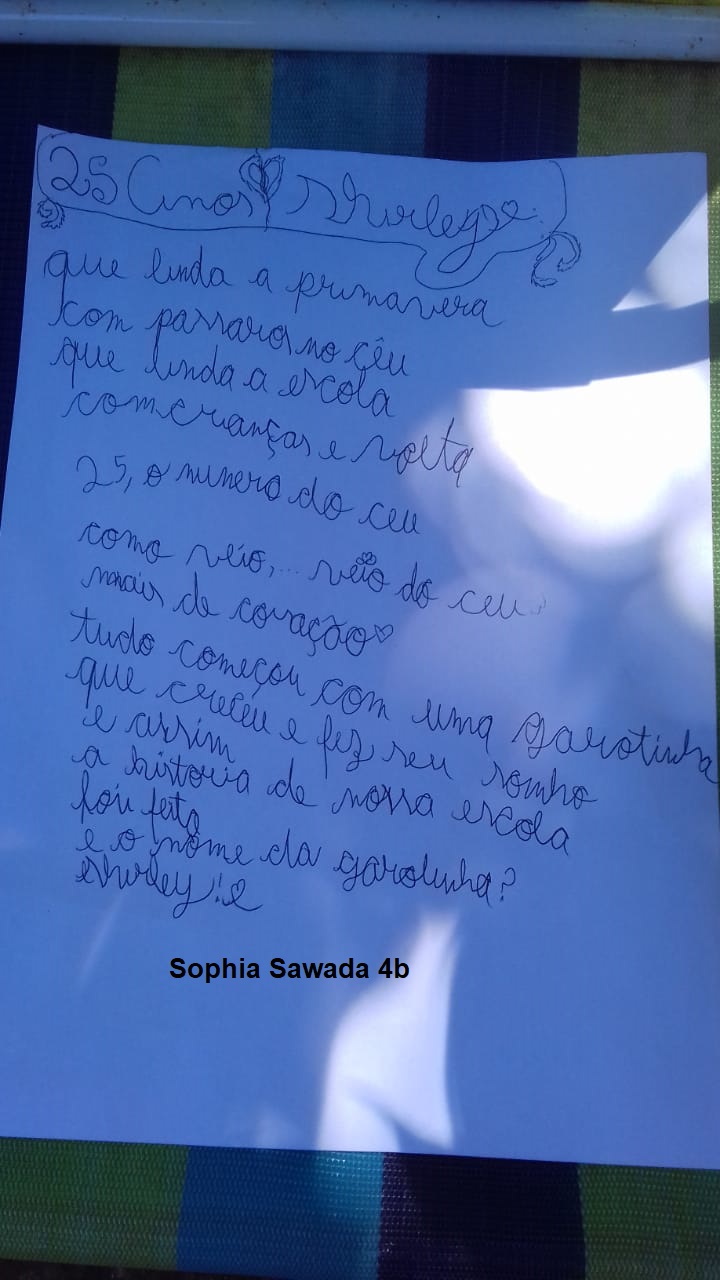 25 Anos Shirley
que linda a primavera
com passaros no cêu
que linda a escola
com crianças e volta
25, o numero do ceu
como veio,... veio do ceu
mais de coração
tudo começou com uma garotinha
que creceu e fez seu sonho
e assim
a historia de nossa escola
foi feita
e o nome da garotinha?
Shirley!
Sophia Sawada 4b